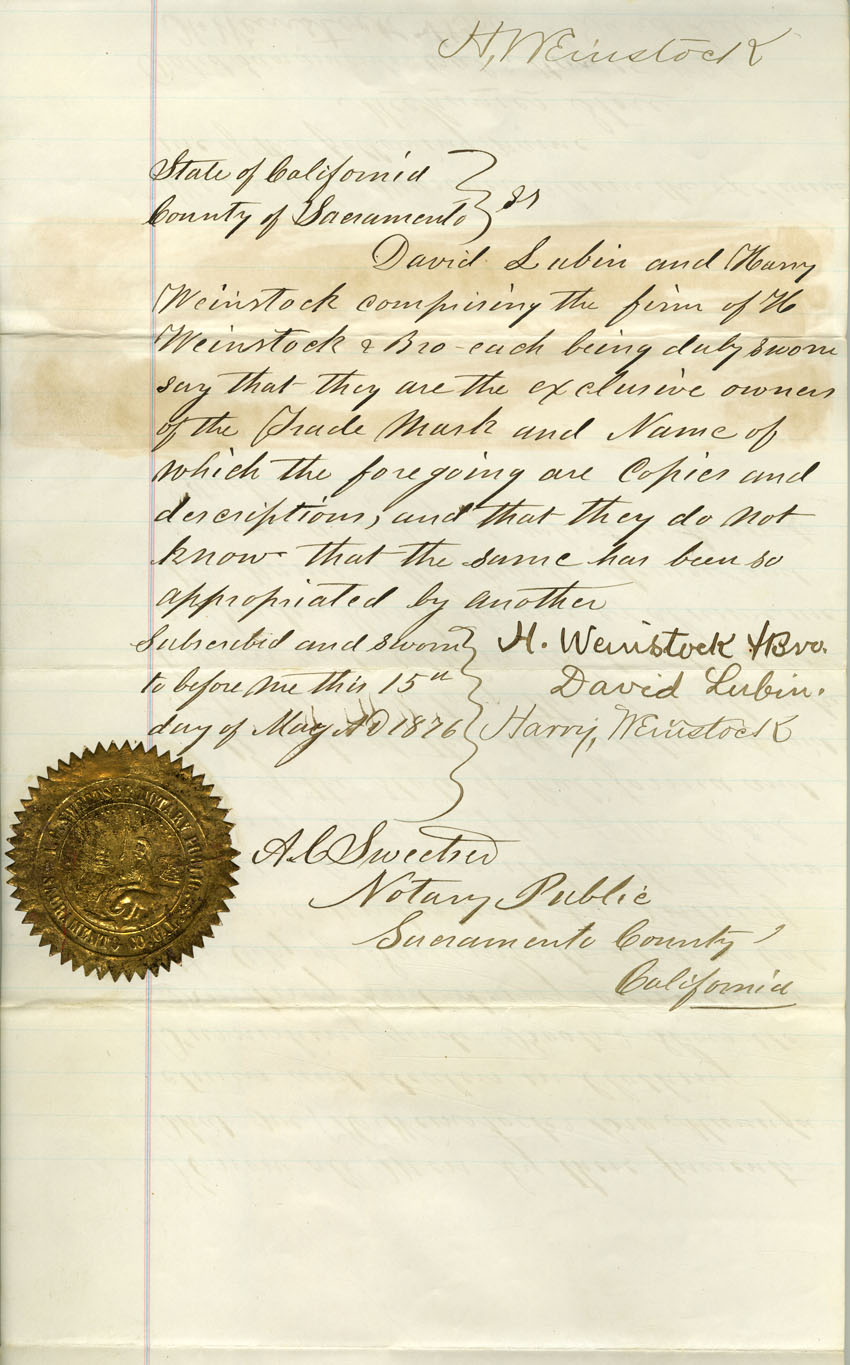 H, Weinstock
State of California
County of Sacramento } ss
David Lubin and Harry
Weinstock comprising the firm of H
Weinstock & Bro each being duly sworn
say that they are the exclusive owners
of the Trade Mark and Name of
which the foregoing are Copies and
descriptions, and that they do not
know that the same has been so
appropriated by another
Subscribed and sworn } H. Weinstock & Bro.
to before me this 15th David Lubin.
day of May AD 1876 Harry, Weinstock
A. C. Sweetser
Notary Public
Sacramento County
California
NOTARY PUBLIC
SACRAMENTO CO. CAL.